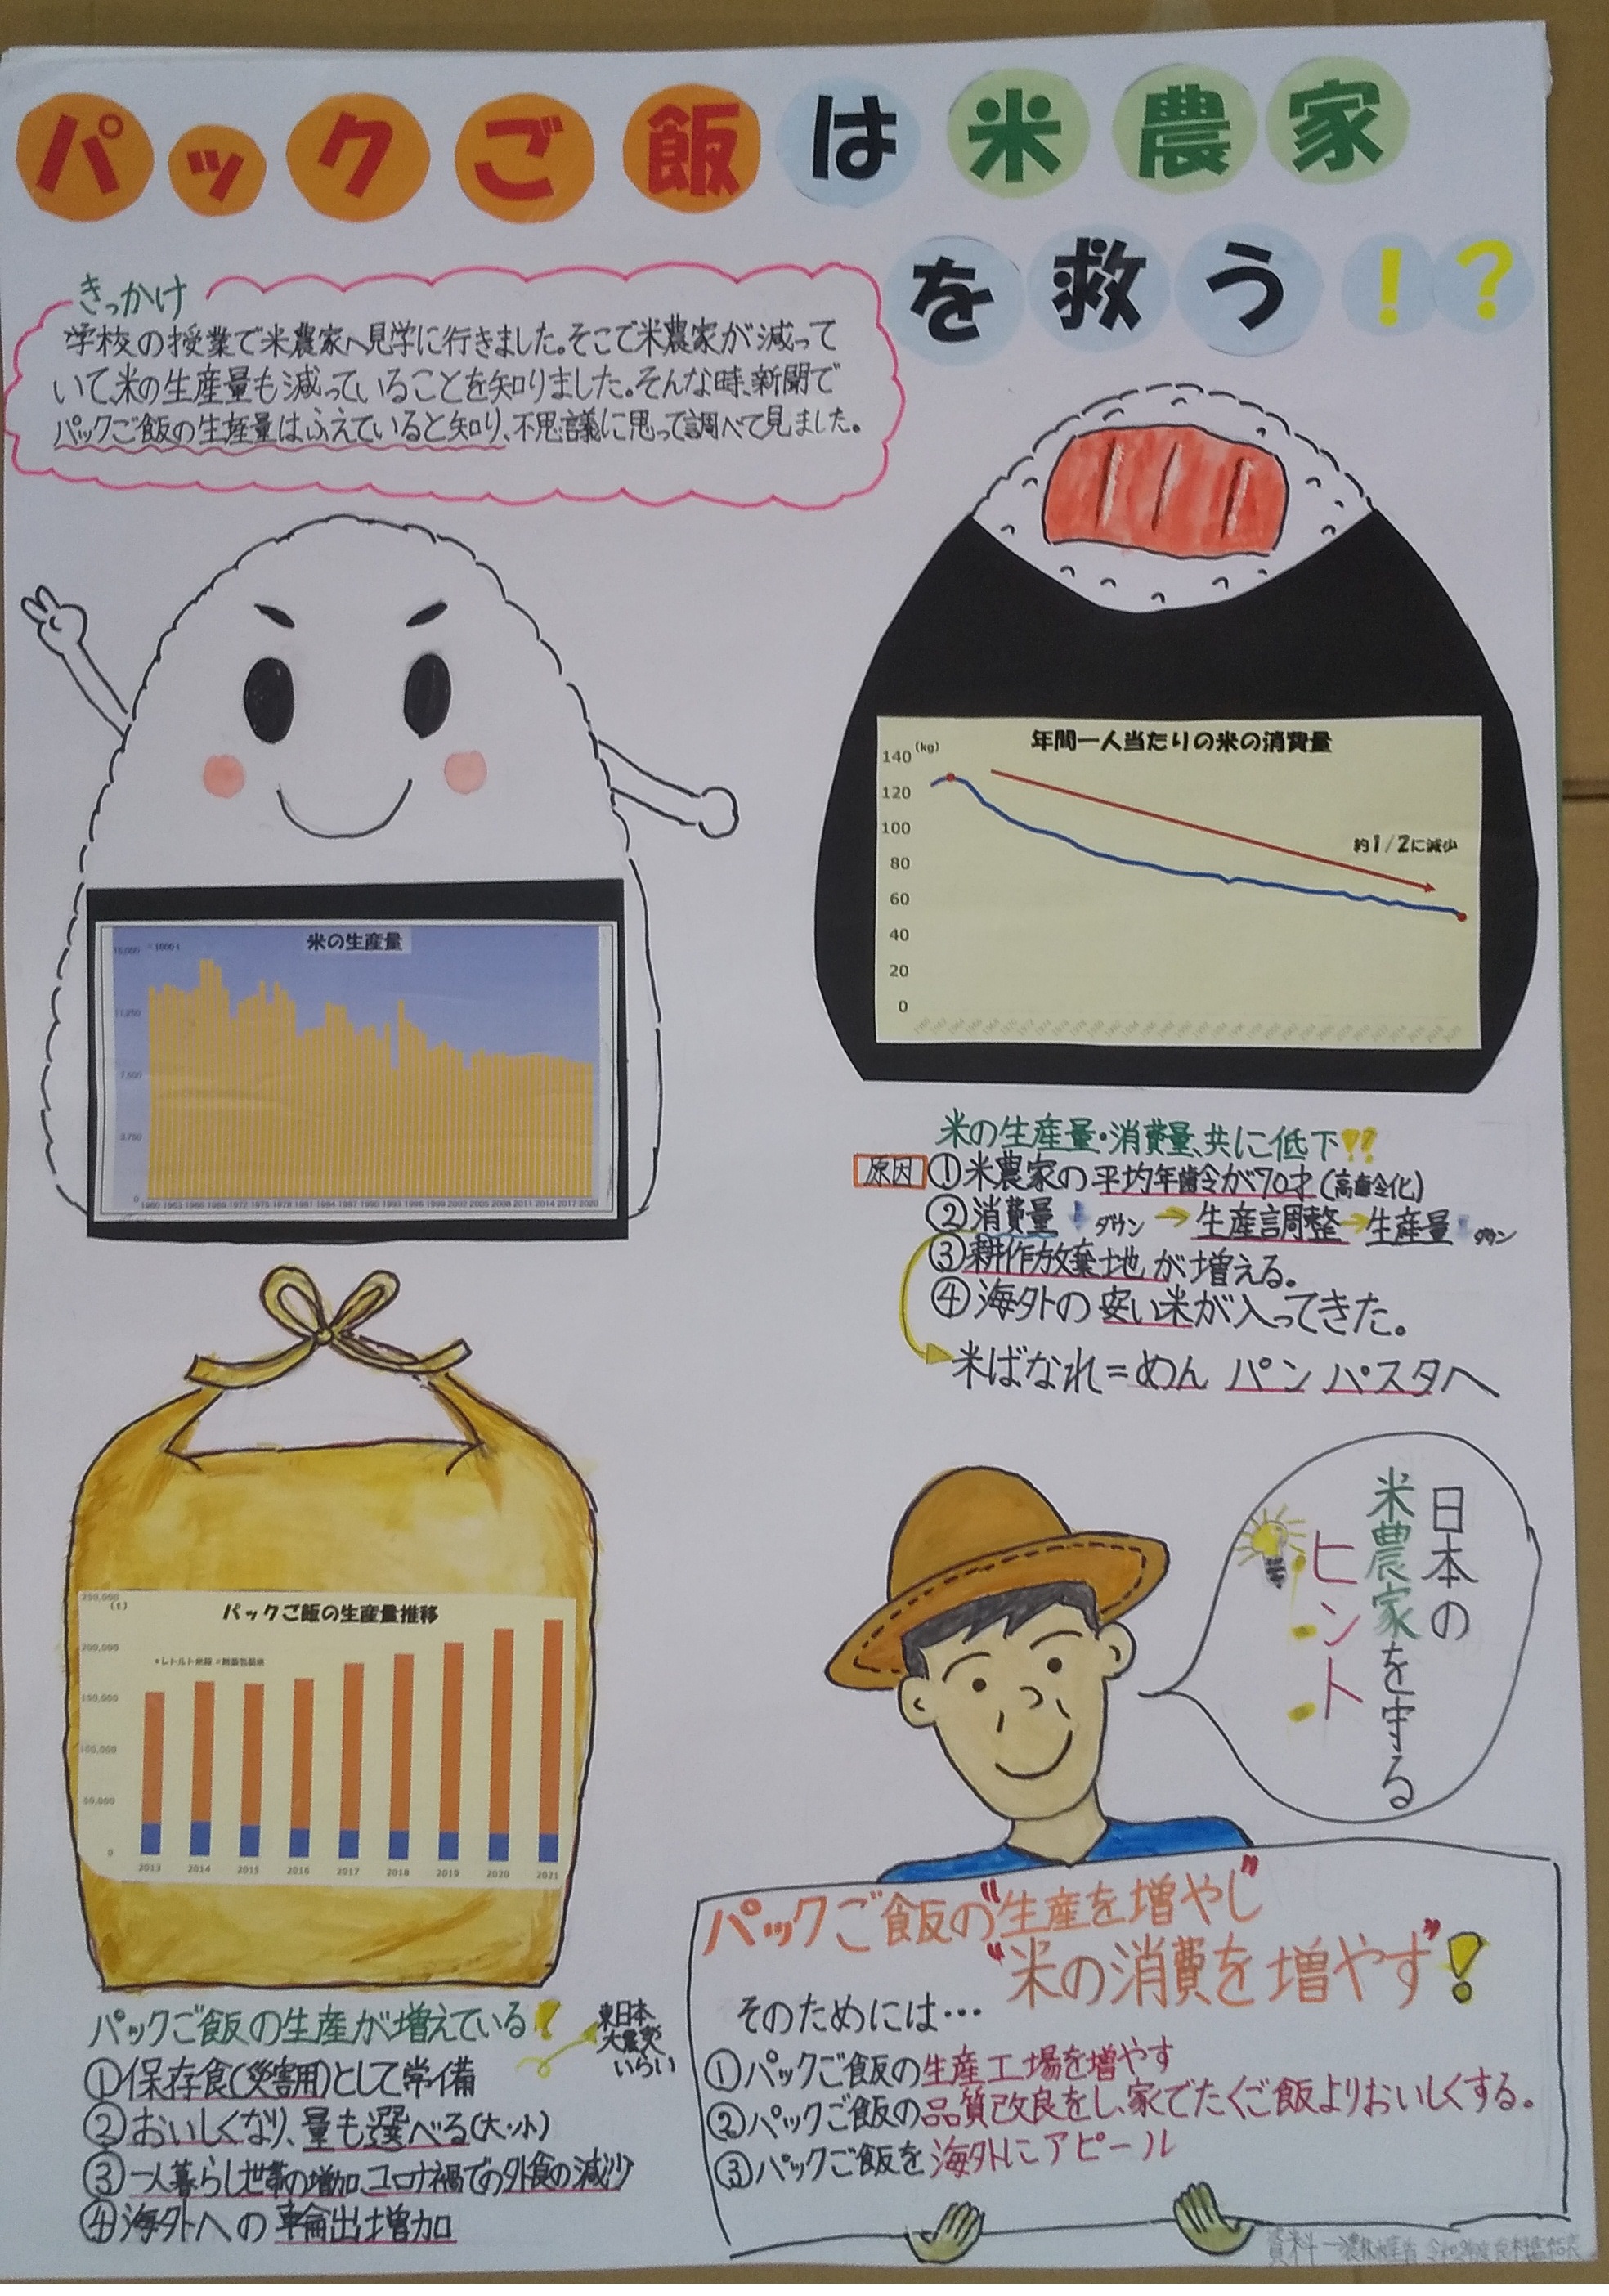 パックご飯は米農家
を救う!?
きっかけ
学校の授業で米農家へ見学に行きました。そこで米農家が減って
いて米の生産量も減っていることを知りました。そんな時、新聞で
パックご飯の生産量はふえていると知り、不思議に思って調べて見ました。
年間一人当たりの米の消費量
(kg)
140
120
100
80
60
40
20
0
約1/2に減少
米の生産量
15,000
11,250
7,500
3,750
0
1960 1963 1966 1969 1972 1975 1978 1981 1984 1987 1990 1993 1996 1999 2002 2005 2008 2011 2014 2017 2020
米の生産量・消費量、共に低下!?
原因 ①米農家の平均年齢が70才(高齢化)
②消費量↓ダウン→生産調整→生産量↓ダウン
③耕作放棄地が増える。
④海外の安い米が入ってきた。
米ばなれ=めん パン パスタへ
パックご飯の生産量推移
(t)
250,000
200,000
150,000
100,000
50,000
0
2013 2014 2015 2016 2017 2018 2019 2020 2021
パックご飯の生産が増えている!
①保存食(災害用)として常備
東日本
大震災
いらい
②おいしくなり、量も選べる(大・小)
③一人暮らし世帯の増加、コロナ禍での外食の減少
④海外への輸出は増加
日本の
米農家を守る
ヒント
パックご飯の"生産を増やし"
"米の消費を増やす"!
そのためには…
①パックご飯の生産工場を増やす
②パックご飯の品質改良をし、家でたくご飯よりおいしくする。
③パックご飯を海外にアピール